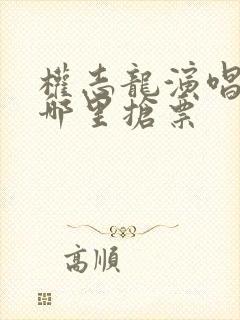 權志龍演唱
哪里搶票
高順